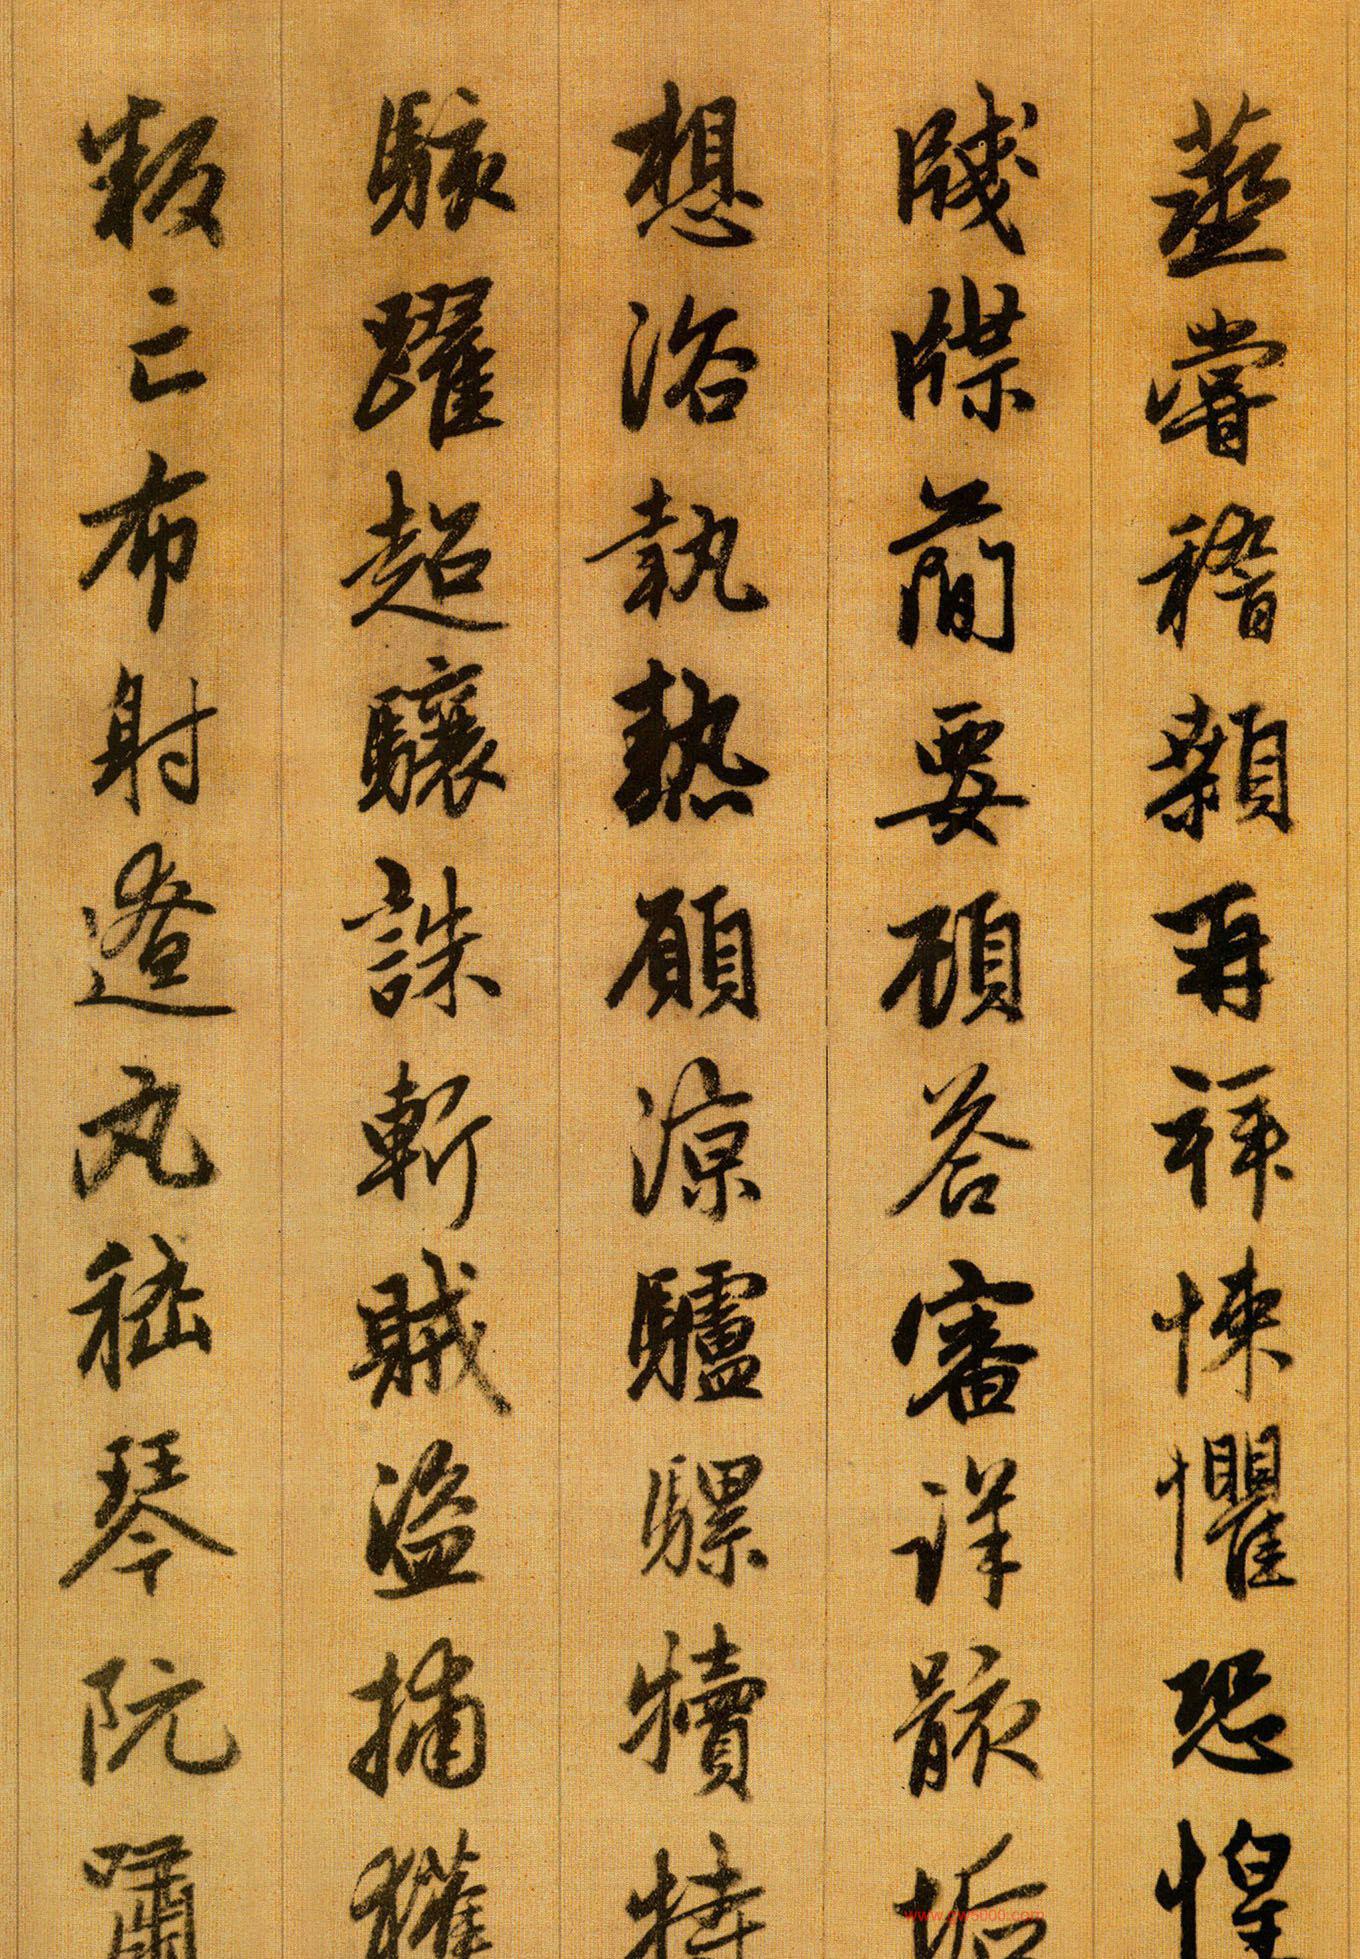 蒸嘗稽顙再拜悚懼恐惶
牋牒簡要頋答審詳骸垢
想浴執熱願涼驢騾犢特
駭躍超驤誅斬賊盜捕獲
叛亡布射遼丸嵇琴阮嘯
www.gw5000.com